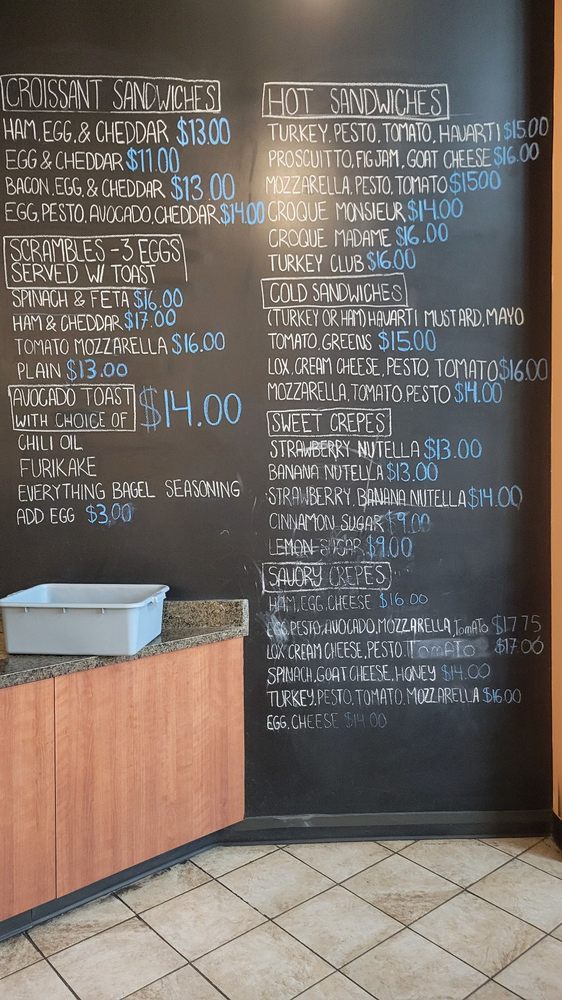 CROISSANT SANDWICHES
HAM, EGG, & CHEDDAR $13.00
EGG & CHEDDAR $11.00
BACON, EGG, & CHEDDAR $13.00
EGG, PESTO, AVOCADO, CHEDDAR $14.00
SCRAMBLES - 3 EGGS
SERVED W/ TOAST
SPINACH & FETA $16.00
HAM & CHEDDAR $17.00
TOMATO MOZZARELLA $16.00
PLAIN $13.00
AVOCADO TOAST
WITH CHOICE OF $14.00
CHILI OIL
FURIKAKE
EVERYTHING BAGEL SEASONING
ADD EGG $3.00
HOT SANDWICHES
TURKEY, PESTO, TOMATO, HAVARTI $15.00
PROSCUITTO, FIG JAM, GOAT CHEESE $16.00
MOZZARELLA, PESTO, TOMATO $1500
CROQUE MONSIEUR $14.00
CROQUE MADAME $16.00
TURKEY CLUB $16.00
COLD SANDWICHES
(TURKEY OR HAM) HAVARTI MUSTARD, MAYO
TOMATO, GREENS $15.00
LOX, CREAM CHEESE, PESTO, TOMATO $16.00
MOZZARELLA, TOMATO, PESTO $14.00
SWEET CREPES
STRAWBERRY NUTELLA $13.00
BANANA NUTELLA $13.00
STRAWBERRY, BANANA NUTELLA $14.00
CINNAMON SUGAR $9.00
LEMON SUGAR $9.00
SAVORY CREPES
HAM, EGG, CHEESE $16.00
PESTO, AVOCADO, MOZZARELLA, TOMATO $17.75
LOX, CREAM CHEESE, PESTO, TOMATO $17.00
SPINACH, GOAT CHEESE, HONEY $14.00
TURKEY, PESTO, TOMATO, MOZZARELLA $16.00
EGG, CHEESE $14.00